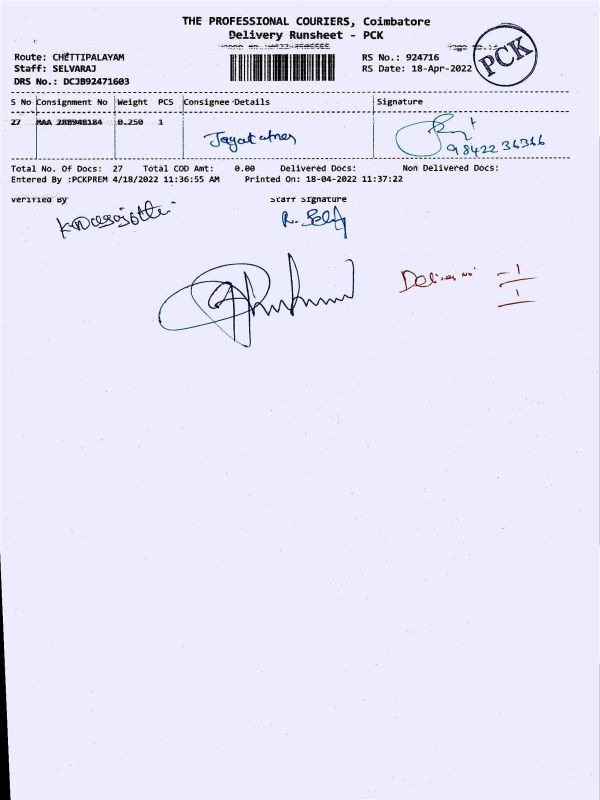 THE PROFESSIONAL COURIERS, Coimbatore
Delivery Runsheet - PCK
Route: CHETTIPALAYAM
Staff: SELVARAJ
DRS No.: DCJB92471603
RS No.: 924716
RS Date: 18-Apr-2022
PCK
S No Consignment No Weight PCS Consignee Details Signature
27 MAA 288948184 0.250 1
98422 36366
Total No. Of Docs: 27 Total COD Amt: 0.00 Delivered Docs: Non Delivered Docs:
Entered By :PCKPREM 4/18/2022 11:36:55 AM Printed On: 18-04-2022 11:37:22
Verified By Staff Signature